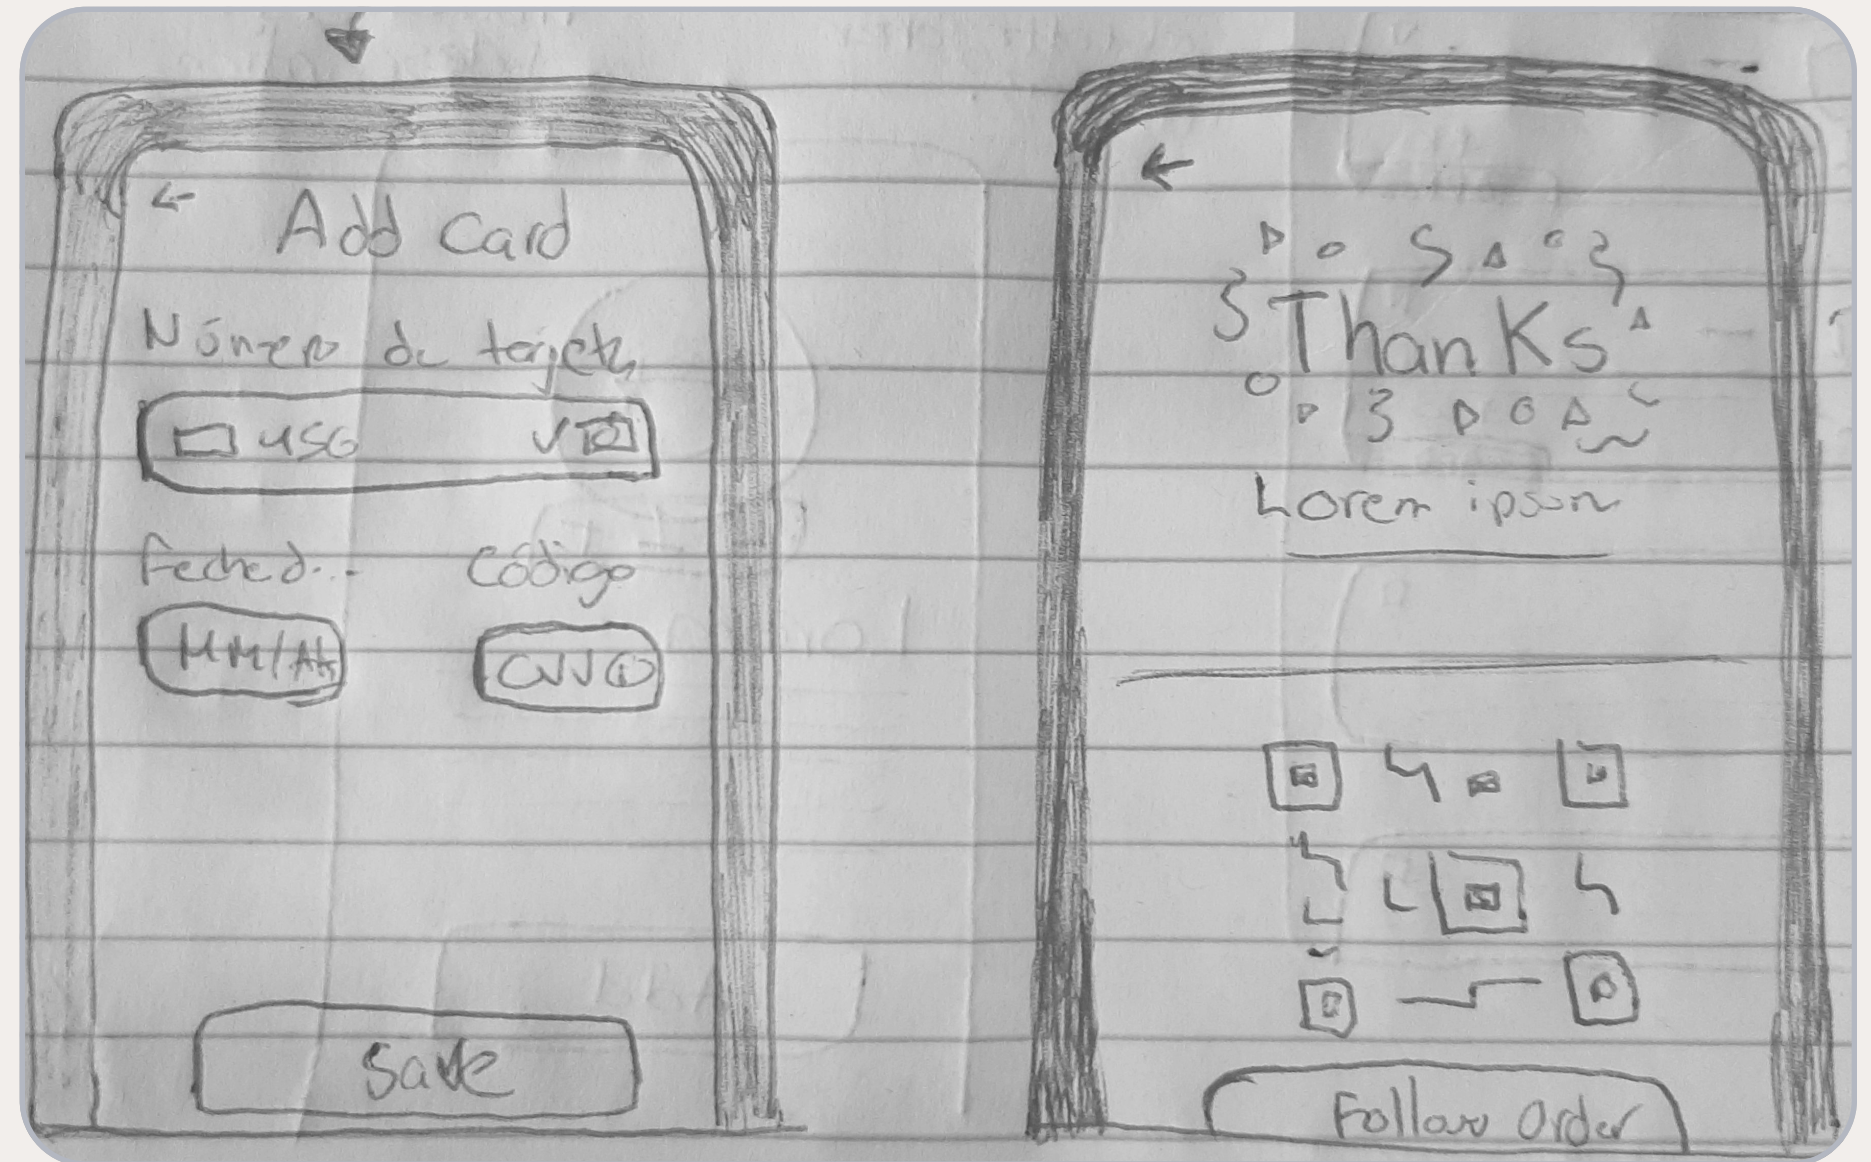 Add Card
Número de tarjeta
456
Fecha d...
Código
MM/AA
CVV
Save
Thanks
Lorem ipsum
Follow Order